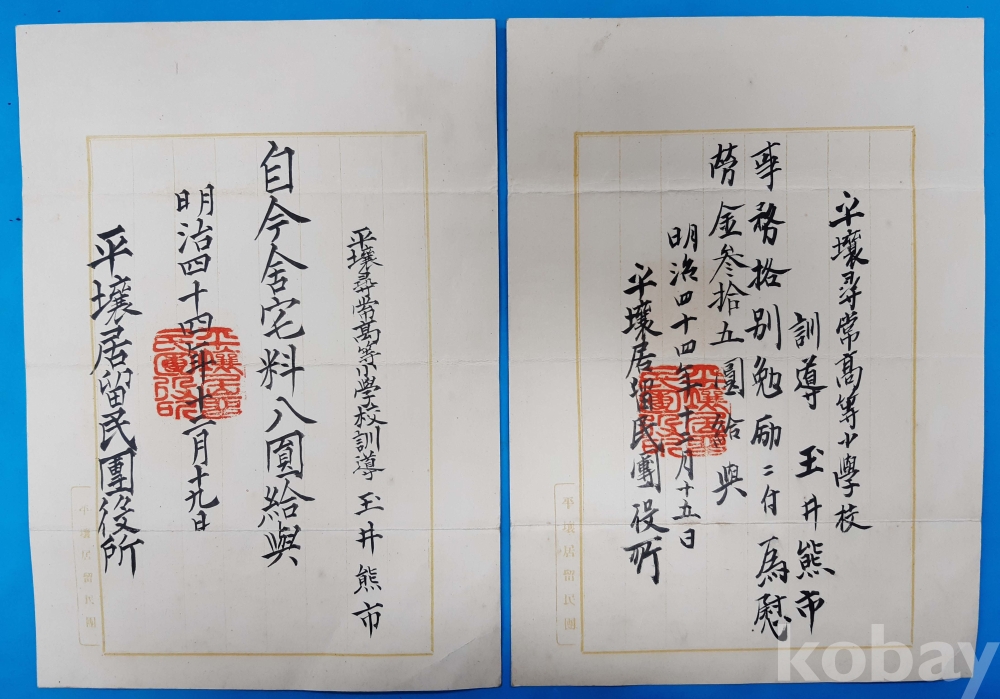 平壤尋常高等小學校
訓導 玉井熊市
事務格別勉励ニ付為慰
労金參拾五圓給與
明治四十四年十二月十五日
平壤居留民團役所
平壤居留民團
平壤尋常高等小學校訓導 玉井熊市
自今舎宅料八圓給與
明治四十四年十二月十九日
平壤居留民團役所
平壤居留民團
kobay